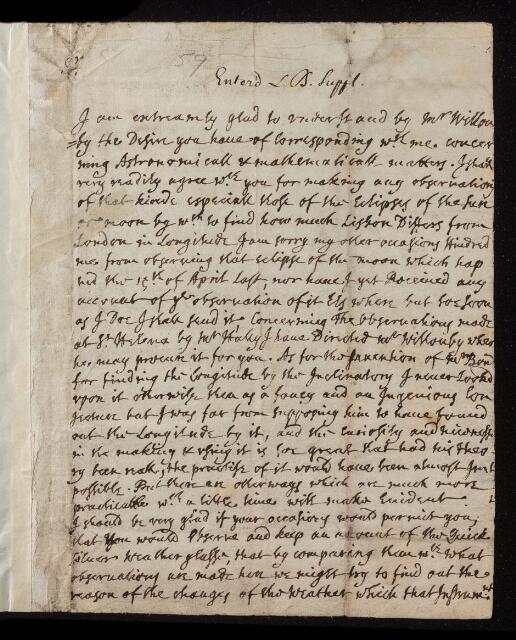 59
Enterd L B. Suppl.
I am extreamly glad to understand by Mr Willou
=by the Desire you have of Corresponding wth me. concer
ning Astronomicall & mathematicall matters. I shall
very readily agree wth you for making any observation
of that kinde especiall those of the Eclipses of the Sun
or moon by wch to find how much Lisbon Differs from
London in Longitude I am sorry my other occasions Hindred
mee from observing that eclipse of the moon which hap
ned the of April Last, nor have I yet Received any
account of ye observation of it Els where but soe soon
as I Doe I shall send it Concerning The observations made
at St Helena by Mr Haley I have Directed Mr Willouby wher
he may procure it for you. As for the Invention of Mr Bond
for finding the Longitude by the Inclinatory I never Looked
upon it otherwise then as a fancy and an Ingenious Con
jecture but I was far from supposing him to have found
out the Longitude by it, and the curiosity and niceness
in the making & using it is soe great that had his theo
ry been reall, the practise of it would have been almost Im
possible. But there are other ways which are much more
practicable wch a little time will make Evident.
I should be very glad if your occasions would permit you,
that you would observe and keep an account of the Quick
silver weather glasse, that by comparing them wth what
observations are made here we might try to find out the
reason of the changes of the weather which that Instrumt